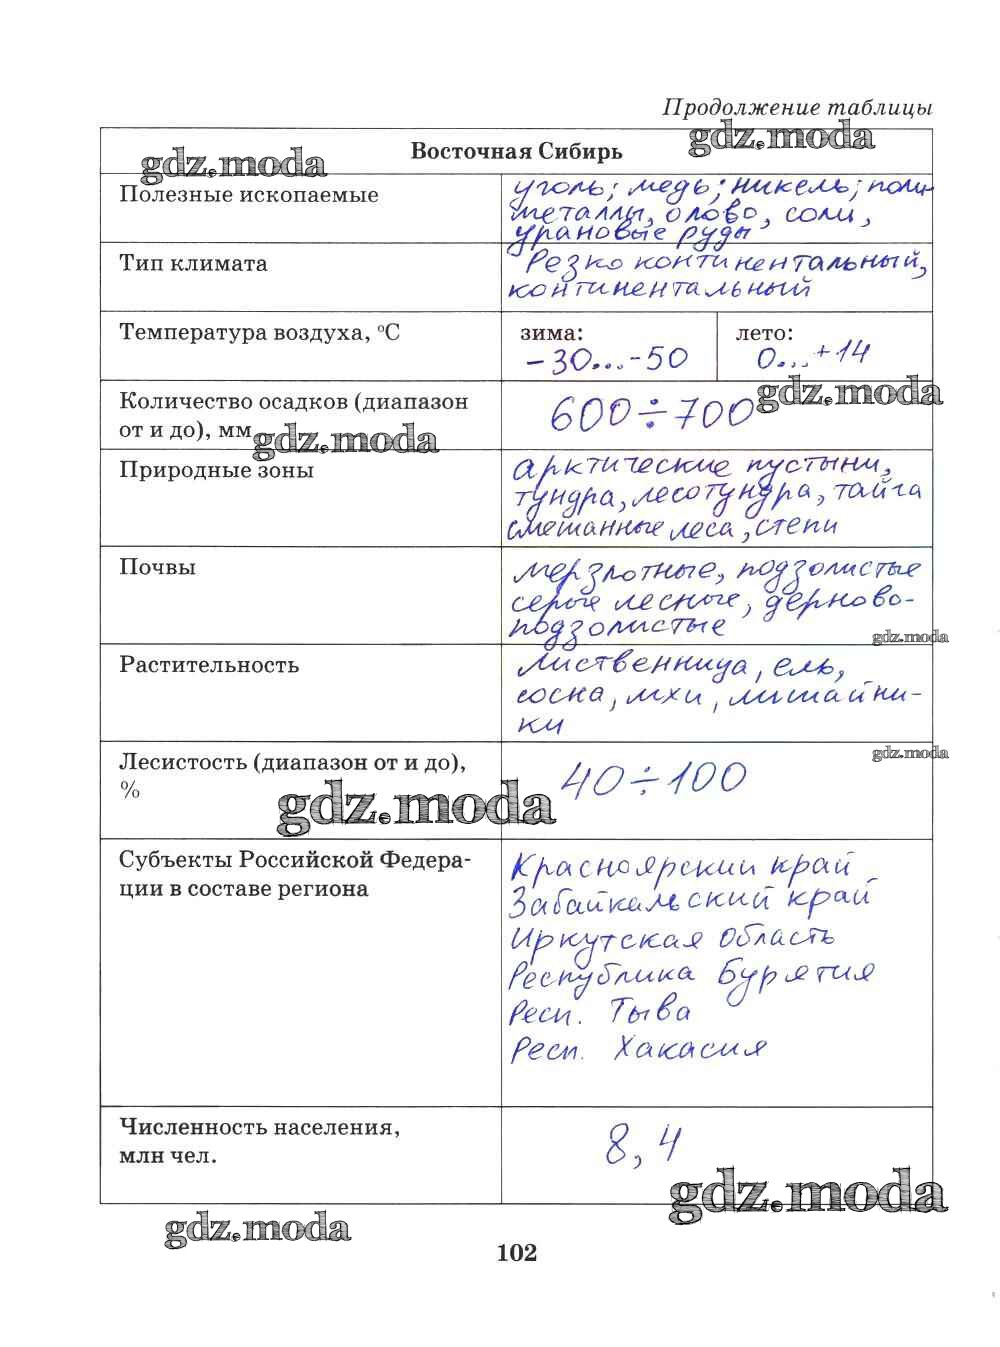 Продолжение таблицы
gdz.moda
gdz.moda
Восточная Сибирь
Полезные ископаемые
уголь; медь; никель; поли-
металлы, олово, соли,
урановые руды
Тип климата
Резко континентальный,
континентальный
Температура воздуха, °С
зима:
-30...-50
лето:
0...+14
Количество осадков (диапазон
от и до), мм
600÷700
gdz.moda
gdz.moda
Природные зоны
арктические пустыни,
тундра, лесотундра, тайга
смешанные леса, степи
Почвы
мерзлотные, подзолистые
серые лесные, дерново-
подзолистые
gdz.moda
Растительность
лиственница, ель,
сосна, мхи, лишайни-
ки
Лесистость (диапазон от и до),
%
40÷100
gdz.moda
gdz.moda
Субъекты Российской Федера-
ции в составе региона
Красноярский край
Забайкальский край
Иркутская область
Республика Бурятия
Респ. Тыва
Респ. Хакасия
Численность населения,
млн чел.
8,4
gdz.moda
gdz.moda
102